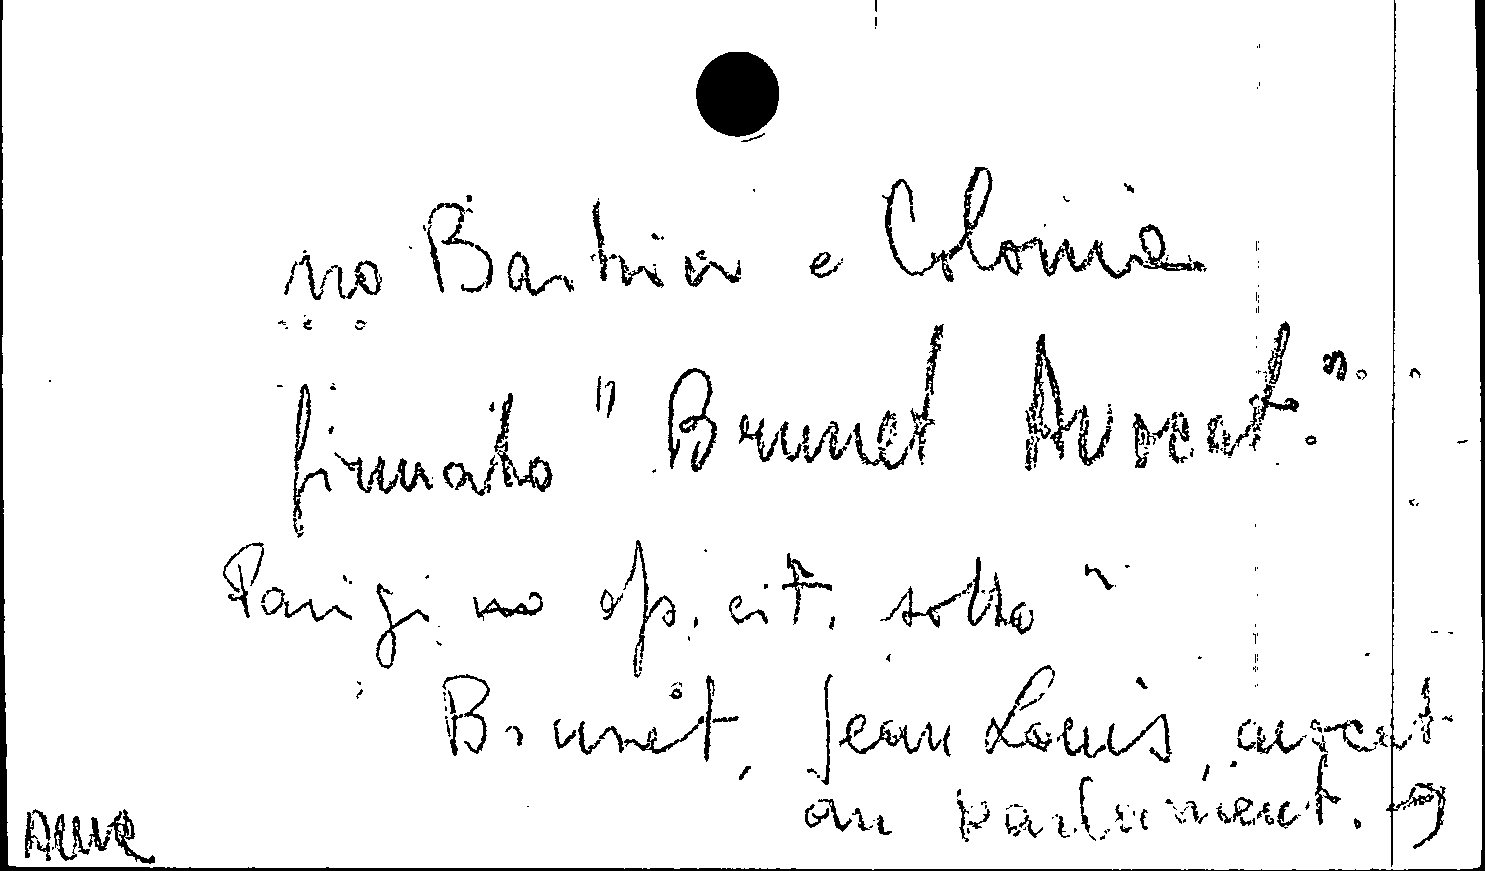 no Barbier e Colonia
firmato "Brunet Avocat."
Parigi no op. cit. sotto
Brunet, Jean Louis, avocat
au parlement.